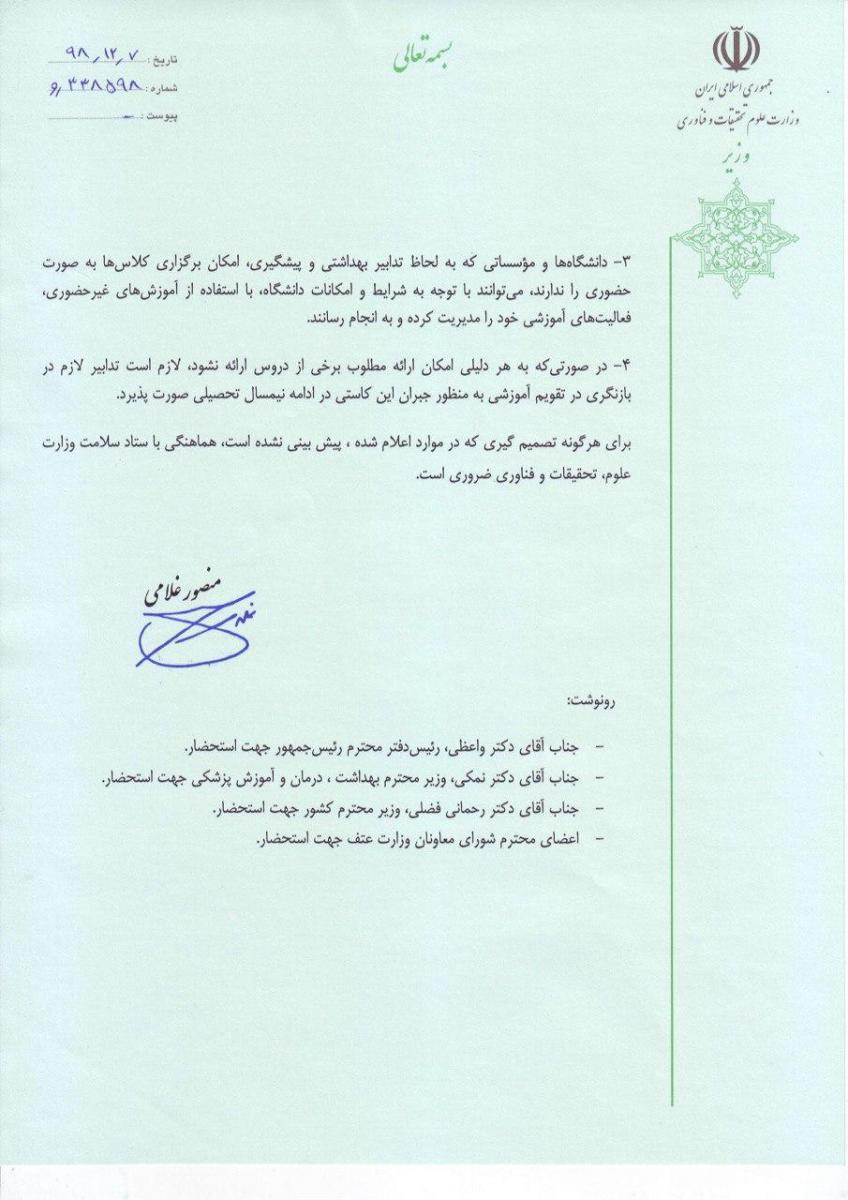 بسمه تعالی
جمهوری اسلامی ایران
وزارت علوم تحقیقات و فناوری
وزیر
تاریخ: ۹۸/۱۲/۷
شماره: ۳۳۸۵۹۸/و
پیوست: -
۳- دانشگاه‌ها و مؤسساتی که به لحاظ تدابیر بهداشتی و پیشگیری، امکان برگزاری کلاس‌ها به صورت
حضوری را ندارند، می‌توانند با توجه به شرایط و امکانات دانشگاه، با استفاده از آموزش‌های غیرحضوری،
فعالیت‌های آموزشی خود را مدیریت کرده و به انجام رسانند.
۴- در صورتی‌که به هر دلیلی امکان ارائه مطلوب برخی از دروس ارائه نشود، لازم است تدابیر لازم در
بازنگری در تقویم آموزشی به منظور جبران این کاستی در ادامه نیمسال تحصیلی صورت پذیرد.
برای هرگونه تصمیم گیری که در موارد اعلام شده ، پیش بینی نشده است، هماهنگی با ستاد سلامت وزارت
علوم، تحقیقات و فناوری ضروری است.
منصور غلامی
رونوشت:
- جناب آقای دکتر واعظی، رئیس‌دفتر محترم رئیس‌جمهور جهت استحضار.
- جناب آقای دکتر نمکی، وزیر محترم بهداشت ، درمان و آموزش پزشکی جهت استحضار.
- جناب آقای دکتر رحمانی فضلی، وزیر محترم کشور جهت استحضار.
- اعضای محترم شورای معاونان وزارت عتف جهت استحضار.